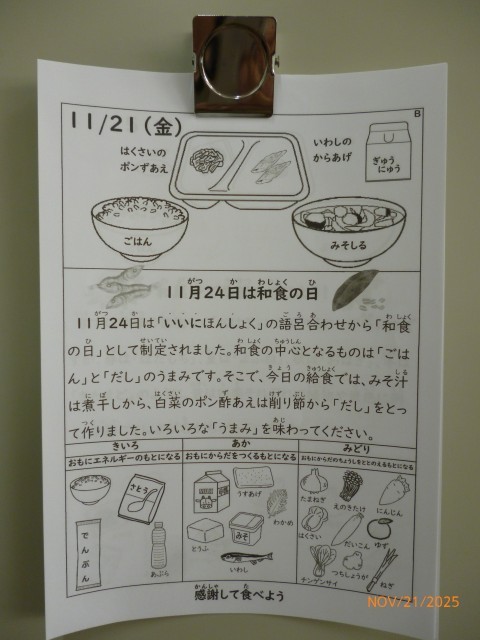 B
11/21(金)
はくさいの
ポンずあえ
いわしの
からあげ
ぎゅう
にゅう
ごはん
みそしる
がつ か わしょく ひ
11月24日は和食の日
がつ か ご ろ あ わ しょく
11月24日は「いいにほんしょく」の語呂合わせから「和食
ひ せいてい わ しょく ちゅうしん
の日」として制定されました。和食の中心となるものは「ごは
きょう きゅうしょく しる
ん」と「だし」のうまみです。そこで、今日の給食では、みそ汁
に ぼ はくさい ず けず ぶし
は煮干しから、白菜のポン酢あえは削り節から「だし」をとっ
つく あじ
て作りました。いろいろな「うまみ」を味わってください。
きいろ
おもにエネルギーのもとになる
さとう
でんぷん
あぶら
あか
おもにからだをつくるもとになる
うすあげ
わかめ
とうふ
みそ
いわし
みどり
おもにからだのちょうしをととのえるもとになる
たまねぎ
えのきたけ
にんじん
はくさい
だいこん
ゆず
チンゲンサイ
つちしょうが
ねぎ
かんしゃ た
感謝して食べよう
NOV/21/2025